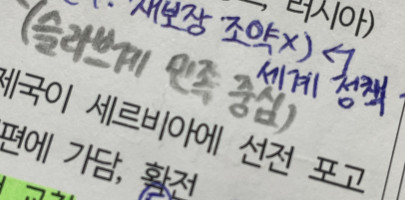 러시아)
재보장 조약×) ↲
(슬라브계 민족 중심)
세계 정책
제국이 세르비아에 선전 포고
편에 가담, 황전